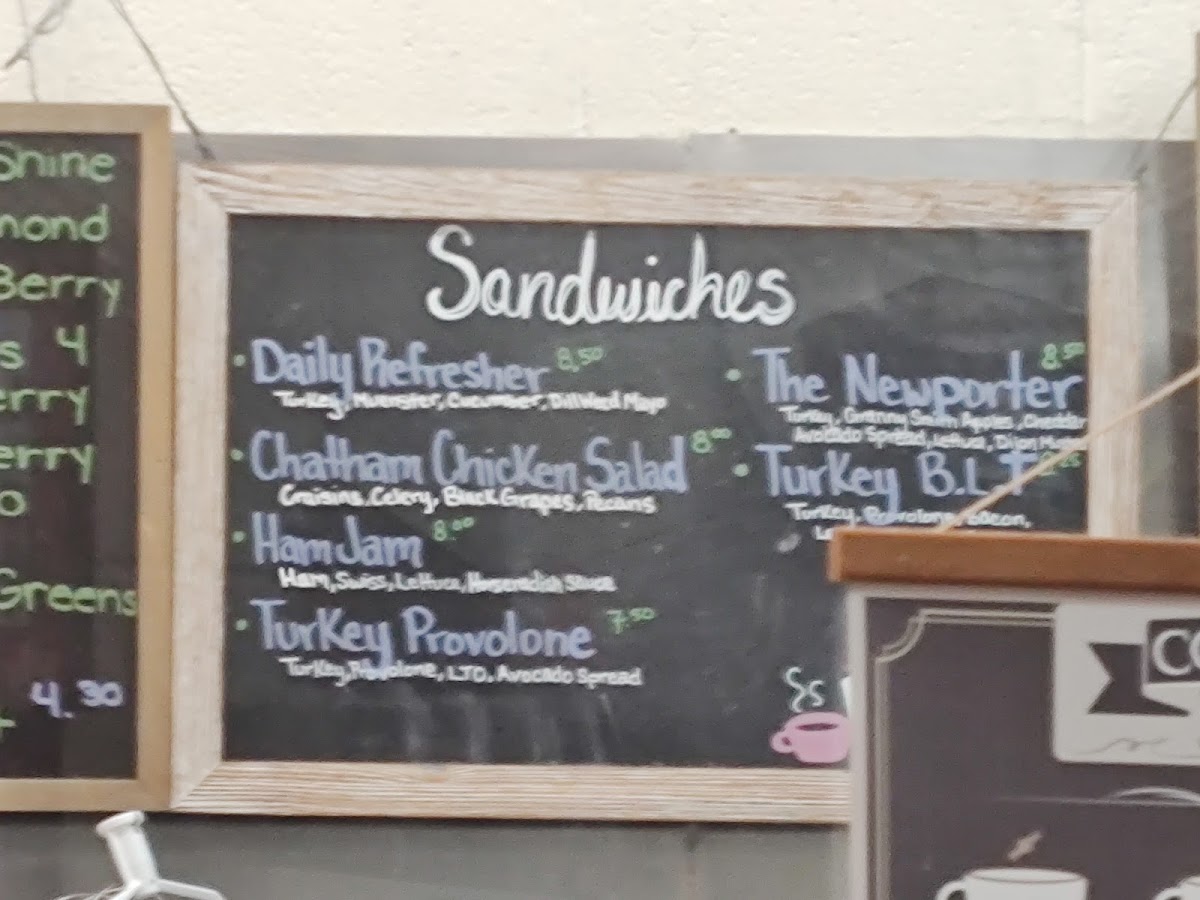 Shine
mond
Berry
s 4
erry
erry
o
Greens
4.30
Sandwiches
Daily Refresher 8,50
Turkey, Muenster, Cucumber, Dill Weed Mayo
Chatham Chicken Salad 8.00
Craisins, Celery, Black Grapes, Pecans
Ham Jam 8.00
Ham, Swiss, Lettuce, Horseradish Sauce
Turkey Provolone 7.50
Turkey, Provolone, LTO, Avocado Spread
The Newporter 8.50
Turkey, Granny Smith Apples, Cheddar
Avocado Spread, Lettuce, Dijon
Turkey B.L.T
Turkey, Provolone, Bacon,
CO